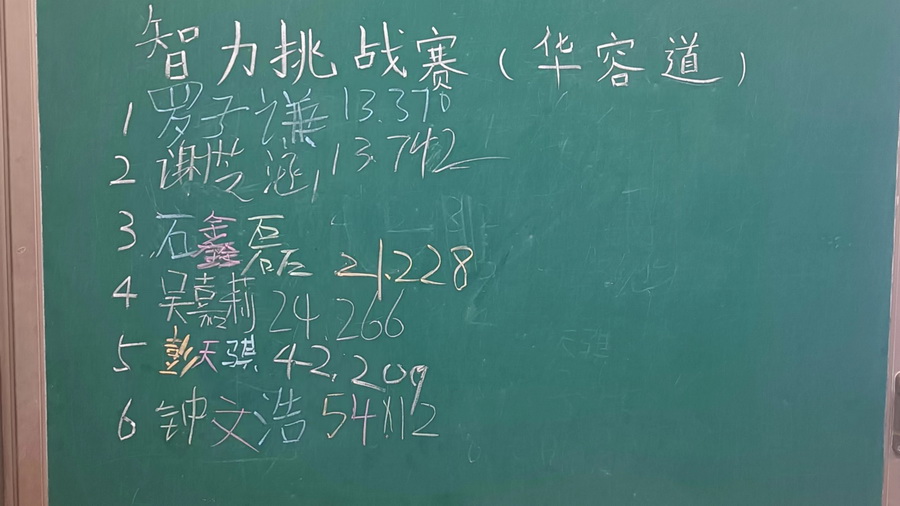 智力挑战赛（华容道）
1 罗子谦 13.370
2 谢梦涵 13.742
3 石鑫磊 21.228
4 吴嘉莉 24.266
5 彭天骐 42.209
6 钟文浩 54.112